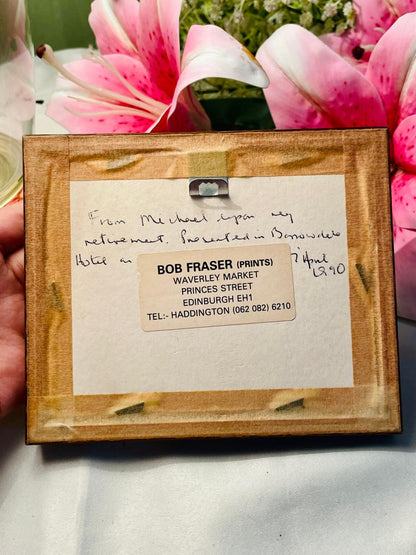 From Michael upon my
retirement. Presented in Borrowdale
Hotel on April
1990
BOB FRASER (PRINTS)
WAVERLEY MARKET
PRINCES STREET
EDINBURGH EH1
TEL:- HADDINGTON (062 082) 6210